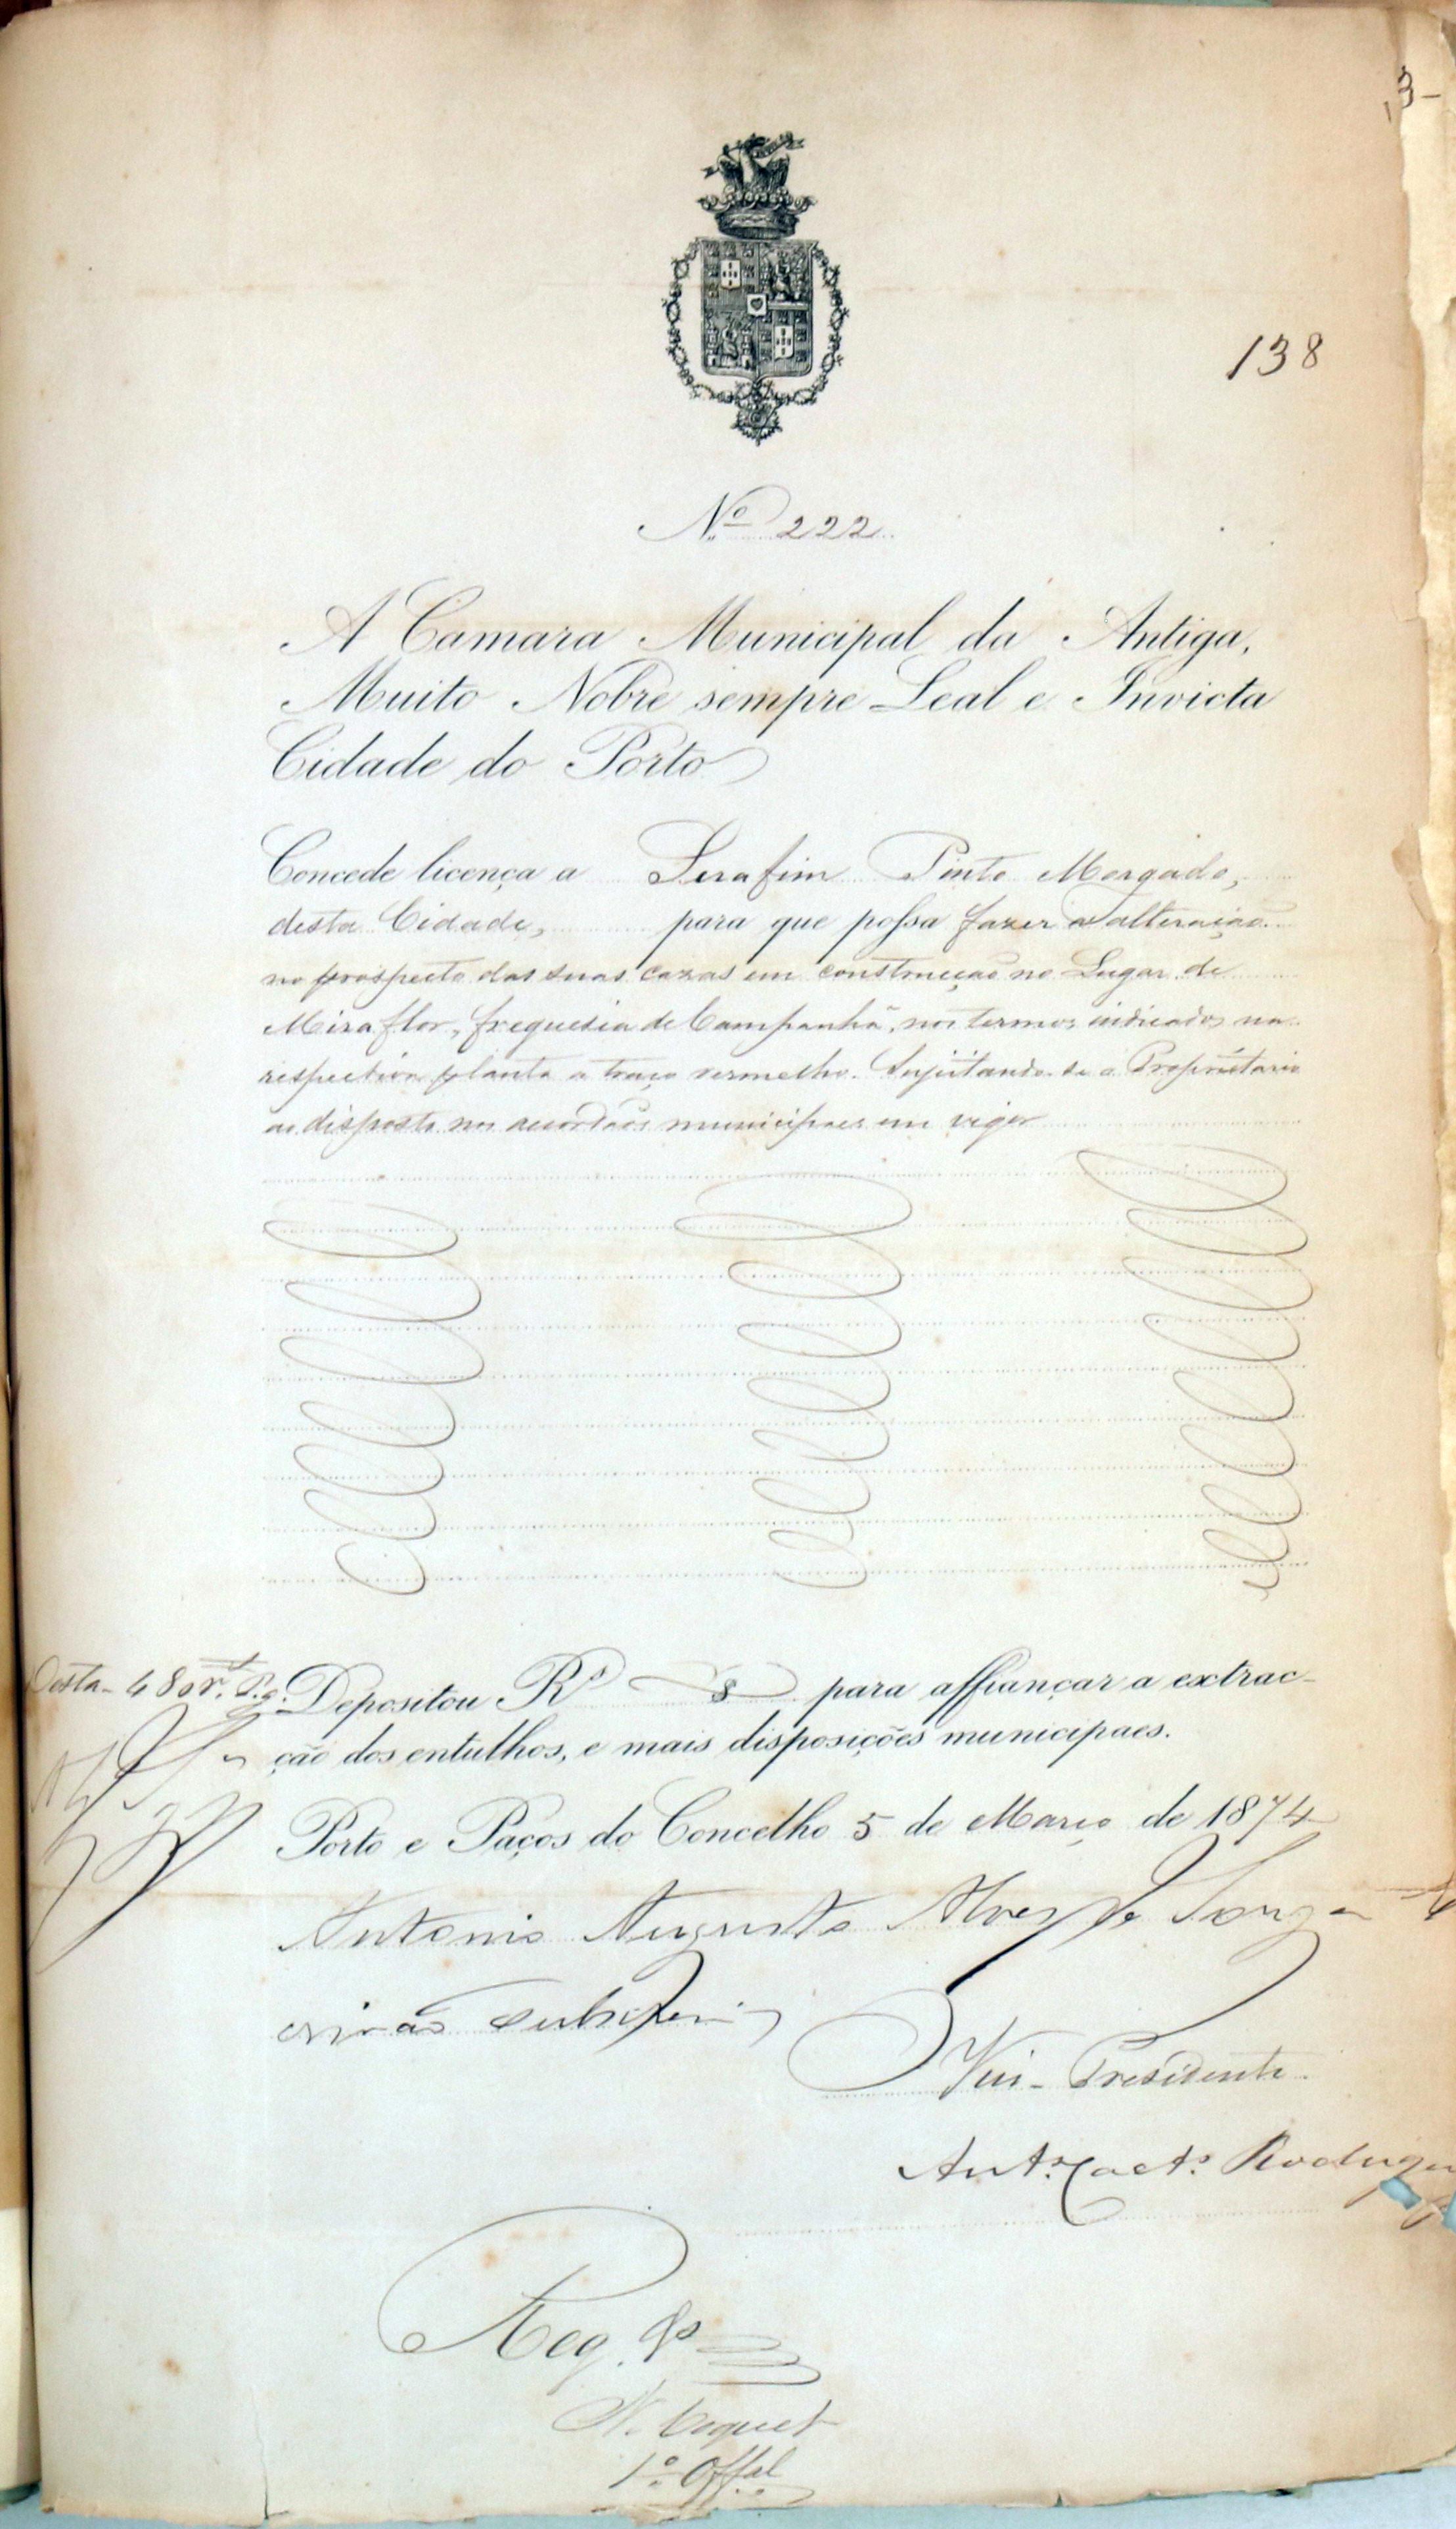 138
Nº 222
A Camara Municipal da Antiga,
Muito Nobre sempre Leal e Invicta
Cidade do Porto
Concede licença a Serafim Pinto Morgado,
desta Cidade, para que possa fazer a alteração
no prospecto das suas cazas em construcção no Lugar de
Miraflor, freguesia de Campanhã, nos termos indicados na
respectiva planta a traço vermelho. Sujeitando-se o Proprietario
ao disposto nos accordãos municipaes em vigor
Desta - 480 r.
Depositou Rs $ para affiançar a extrac-
ção dos entulhos, e mais disposições municipaes.
Porto e Paços do Concelho 5 de Março de 1874
Antonio Augusto Alves de Souza
escrivão subscrevi
Vice-Presidente
Antº Caetº Rodrigues
Reg. 
N. Coquet
1º Offal